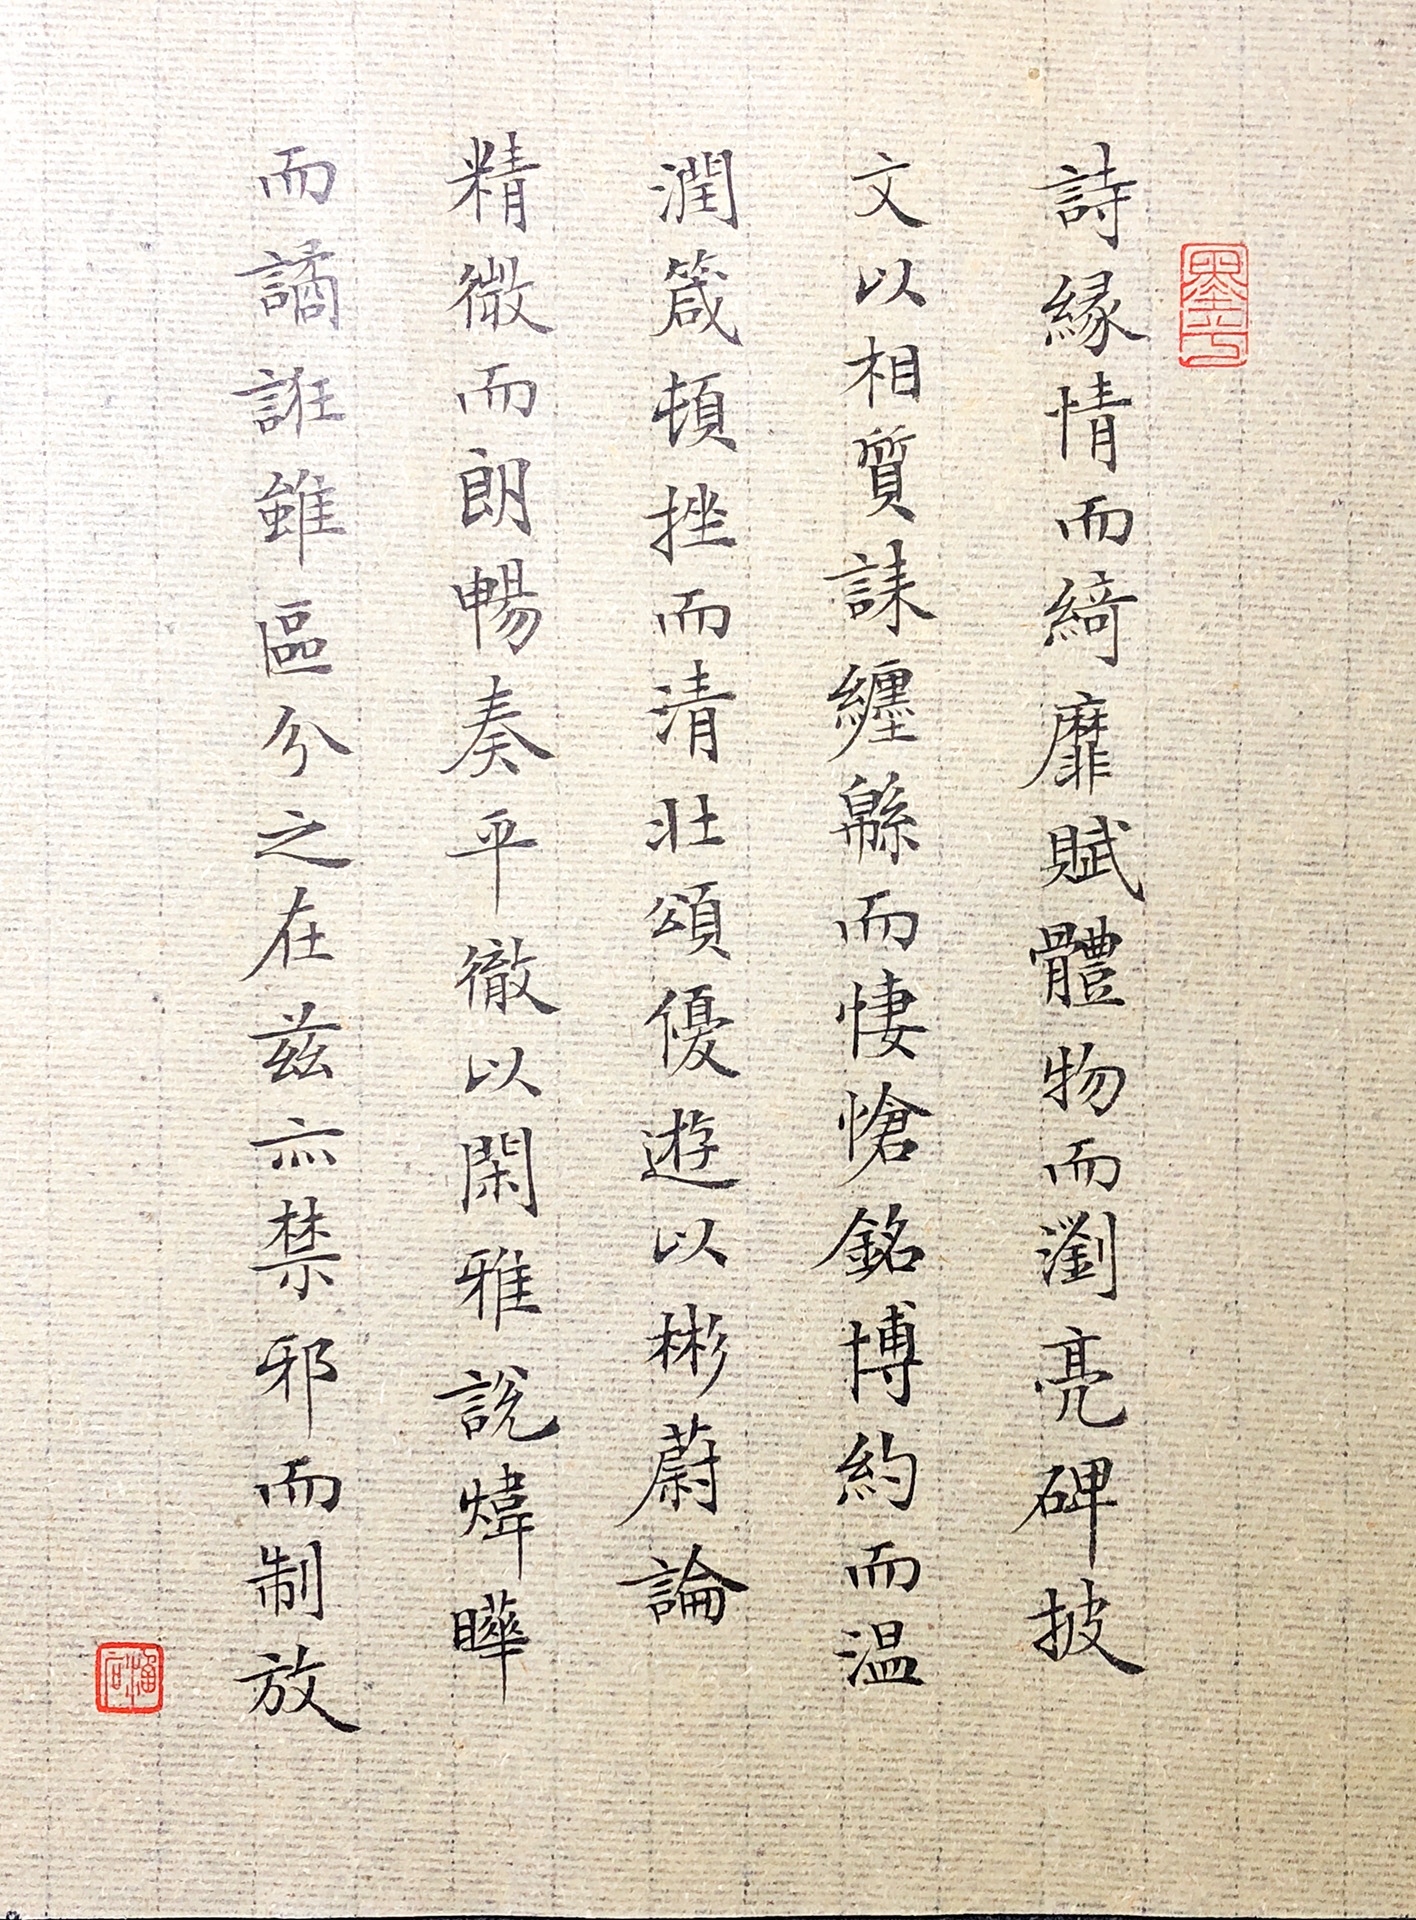 詩緣情而綺靡賦體物而瀏亮碑披
文以相質誄纏緜而悽愴銘博約而温
潤箴頓挫而清壯頌優遊以彬蔚論
精微而朗暢奏平徹以閑雅說煒曄
而譎誑雖區分之在茲亦禁邪而制放